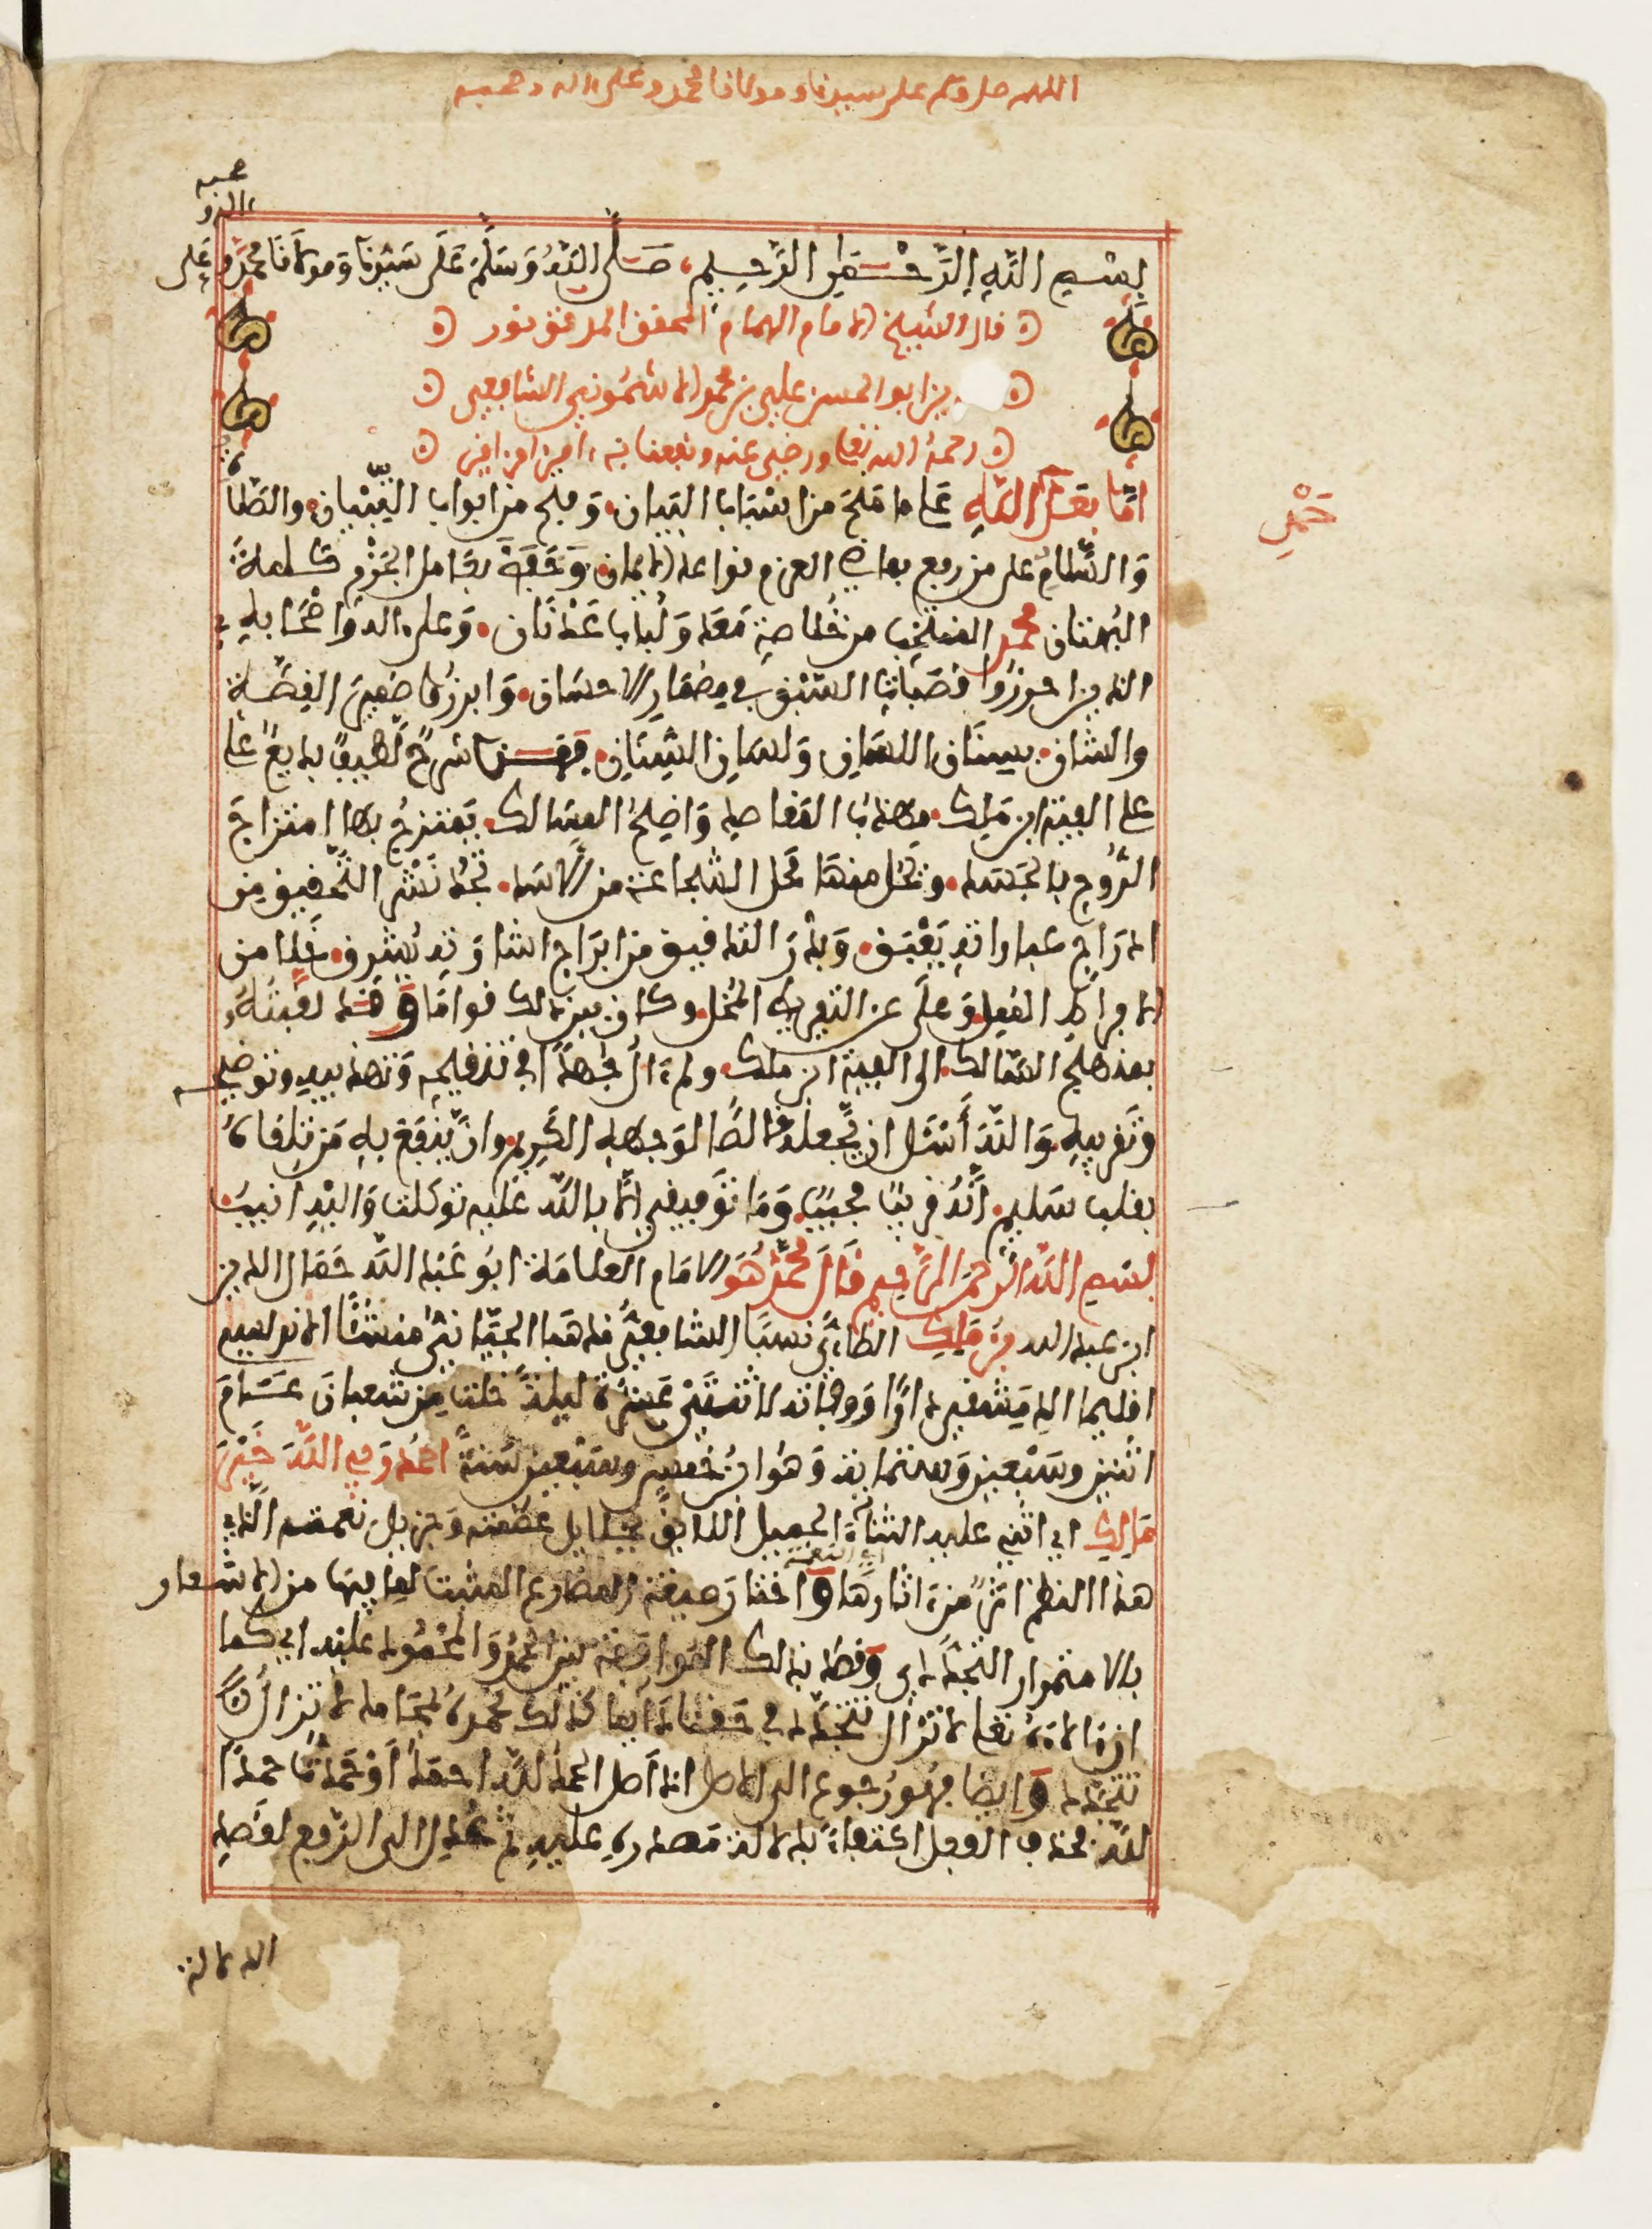 اللهم صل وسلم على سيدنا ومولانا محمد وعلى ءاله وصحبه
بسم الله الرحمن الرحيم، صلى الله وسلم على سيدنا ومولانا محمد وعلى
ءاله و
صحبه
قال الشيخ الامام الهمام المحقق المدقق نور
ين ابو الحسن علي بن محمد الاشموني الشافعي
رحمه الله تعلى ورضي عنه ونفعنا به ءامين امين امين
اما بعد حمد الله على ما منح من اسباب البيان، وفتح من ابواب التبيان، والصلاة
حمد
والسلام على من رفع بماضي العزم قواعد الايمان، وخفض بعامل الجزم كلمة
البهتان محمد المنتخب من خلاصة معد ولباب عدنان، وعلى ءاله واصحابه
الذين احرزوا قصبات السبق في مضمار الاحسان، وابرزوا ضمير القصة
والشان، بسنان اللسان ولسان السنان، فهذا شرح لطيف بديع على
على الفية ابن ملك، مهذب المقاصد واضح المسالك، يمتزج بها امتزاج
الروح بالجسد، ويحل منها محل الشجاعة من الاسد، تجد نشر التحقيق من
ادراج عباراته يعبق، وبدر التدقيق من ابراج اشاراته يشرق، خلا من
الافراط الممل وعلى عن التفريط المخل وكان بين ذلك قواما وقد لقبته
بمنهج السالك الى الفية ابن ملك، ولم ءال جهدا في تنقيحه وتهذيبه وتوضيحه
وتقريبه والله أسئل ان يجعله خالصا لوجهه الكريم، وان ينفع به من تلقاه
بقلب سليم، انه قريب مجيب، وما توفيقي الا بالله عليه توكلت واليه انيب
بسم الله الرحمن الرحيم قال محمد هو الامام العلامة ابو عبد الله جمال الدين
ابن عبد الله بن ملك الطائي نسبا الشافعي مذهبا الجياني منشئا الاندلسي
اقليما الدمشقي دارا ووفاة لاثنتي عشرة ليلة خلت من شعبان عام
اثنين وسبعين وستمائة وهو ابن خمس وسبعين سنة احمد ربي الله خير
مالك اي اثني عليه الثناء الجميل اللايق بجلايل عظمته وجزيل نعمته التي
هذا النظم اثر من ءاثارها واختار صيغة المضارع المثبت لما فيها من الاشعار
اي النعمة
بالاستمرار التجددي وقصد بذلك الموافقة بين الحمد والمحمود عليه اي كما
ان ءالاءه تعلى لا تزال تتجدد في حقنا دايما كذلك نحمده بمحامد لا تزال
تتجدد وايضا فهو رجوع الى الاصل اذ اصل الحمد لله احمد او حمدت حمدا
لله فحذف الفعل اكتفاء بدلالة مصدره عليه ثم عدل الى الرفع لقصد
الدلالة